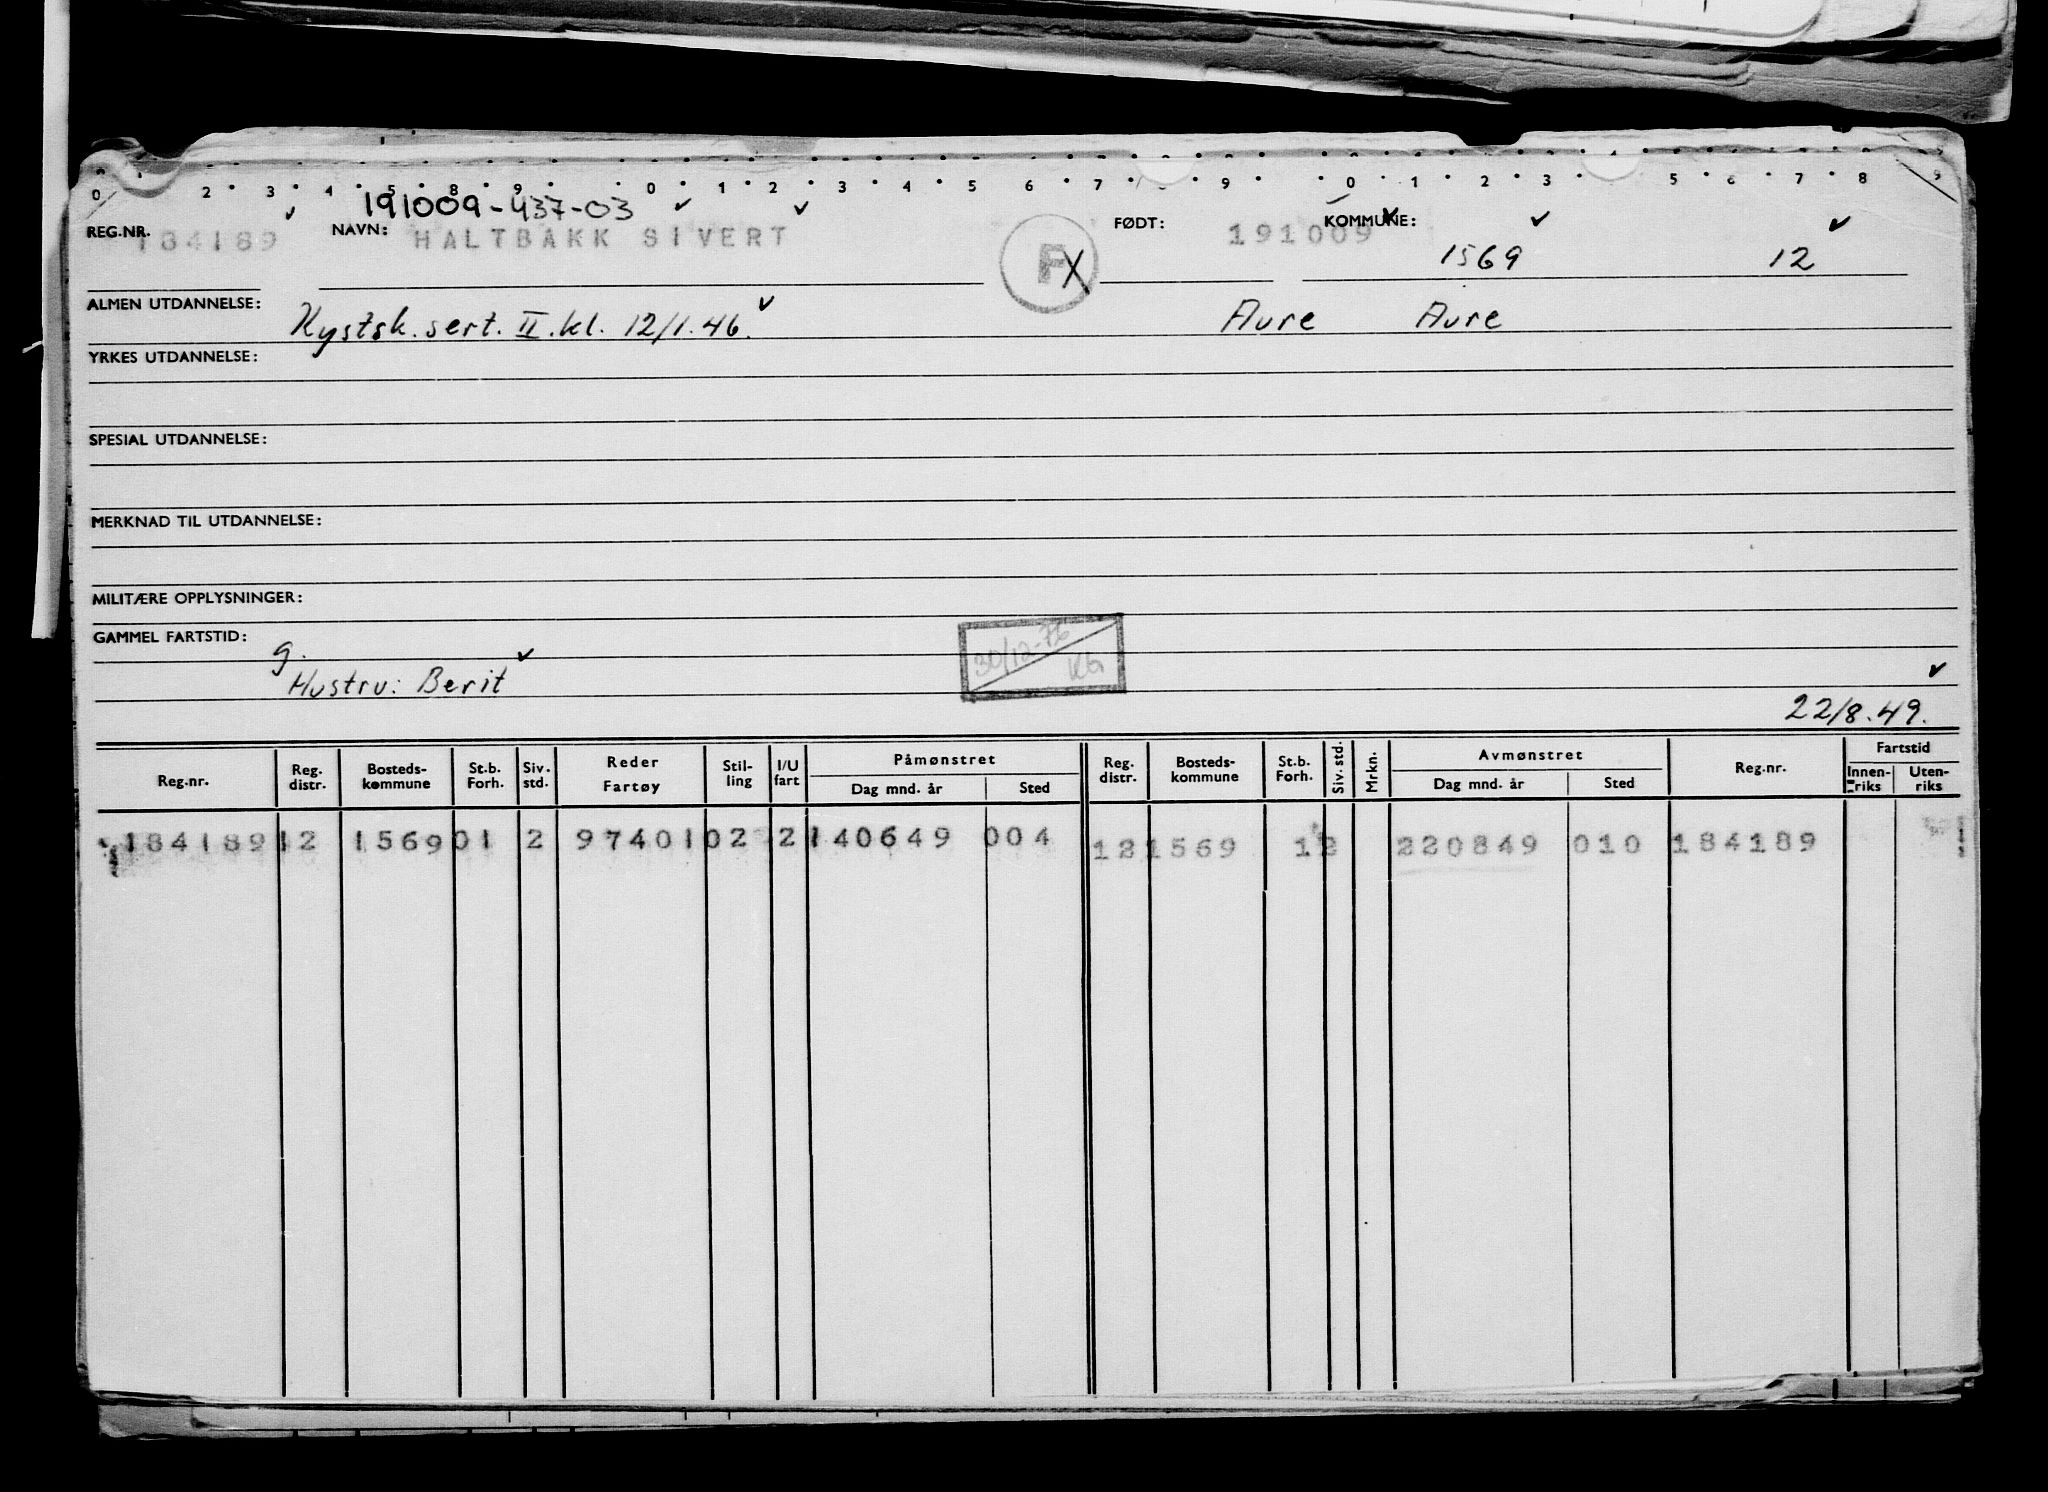 0 2 3 4 5 8 9 4 0 1 2 3 4 5 6 7 9 0 1 2 3 5 6 7 8 9
191009-437-03
REG.NR. 184189 NAVN: HALTBAKK SIVERT F X FØDT: 191009 KOMMUNE: 1569 12
ALMEN UTDANNELSE: Kystsk. sert. II. kl. 12/1.46. Aure Aure
YRKES UTDANNELSE:
SPESIAL UTDANNELSE:
MERKNAD TIL UTDANNELSE:
MILITÆRE OPPLYSNINGER:
GAMMEL FARTSTID: g. 30/12-76
Hustru: Berit
22/8.49.
Reg.nr. Reg. distr. Bosteds-kommune St.b. Forh. Siv. std. Reder Fartøy Stil-ling I/U fart Påmønstret Dag mnd. år Sted Reg. distr. Bosteds-kommune St.b. Forh. Siv. std. Mrkn. Avmønstret Dag mnd. år Sted Reg.nr. Fartstid Innen-riks Uten-riks
184189 12 1569 01 2 97401 02 2 140649 004 12 1569 1 2 220849 010 184189